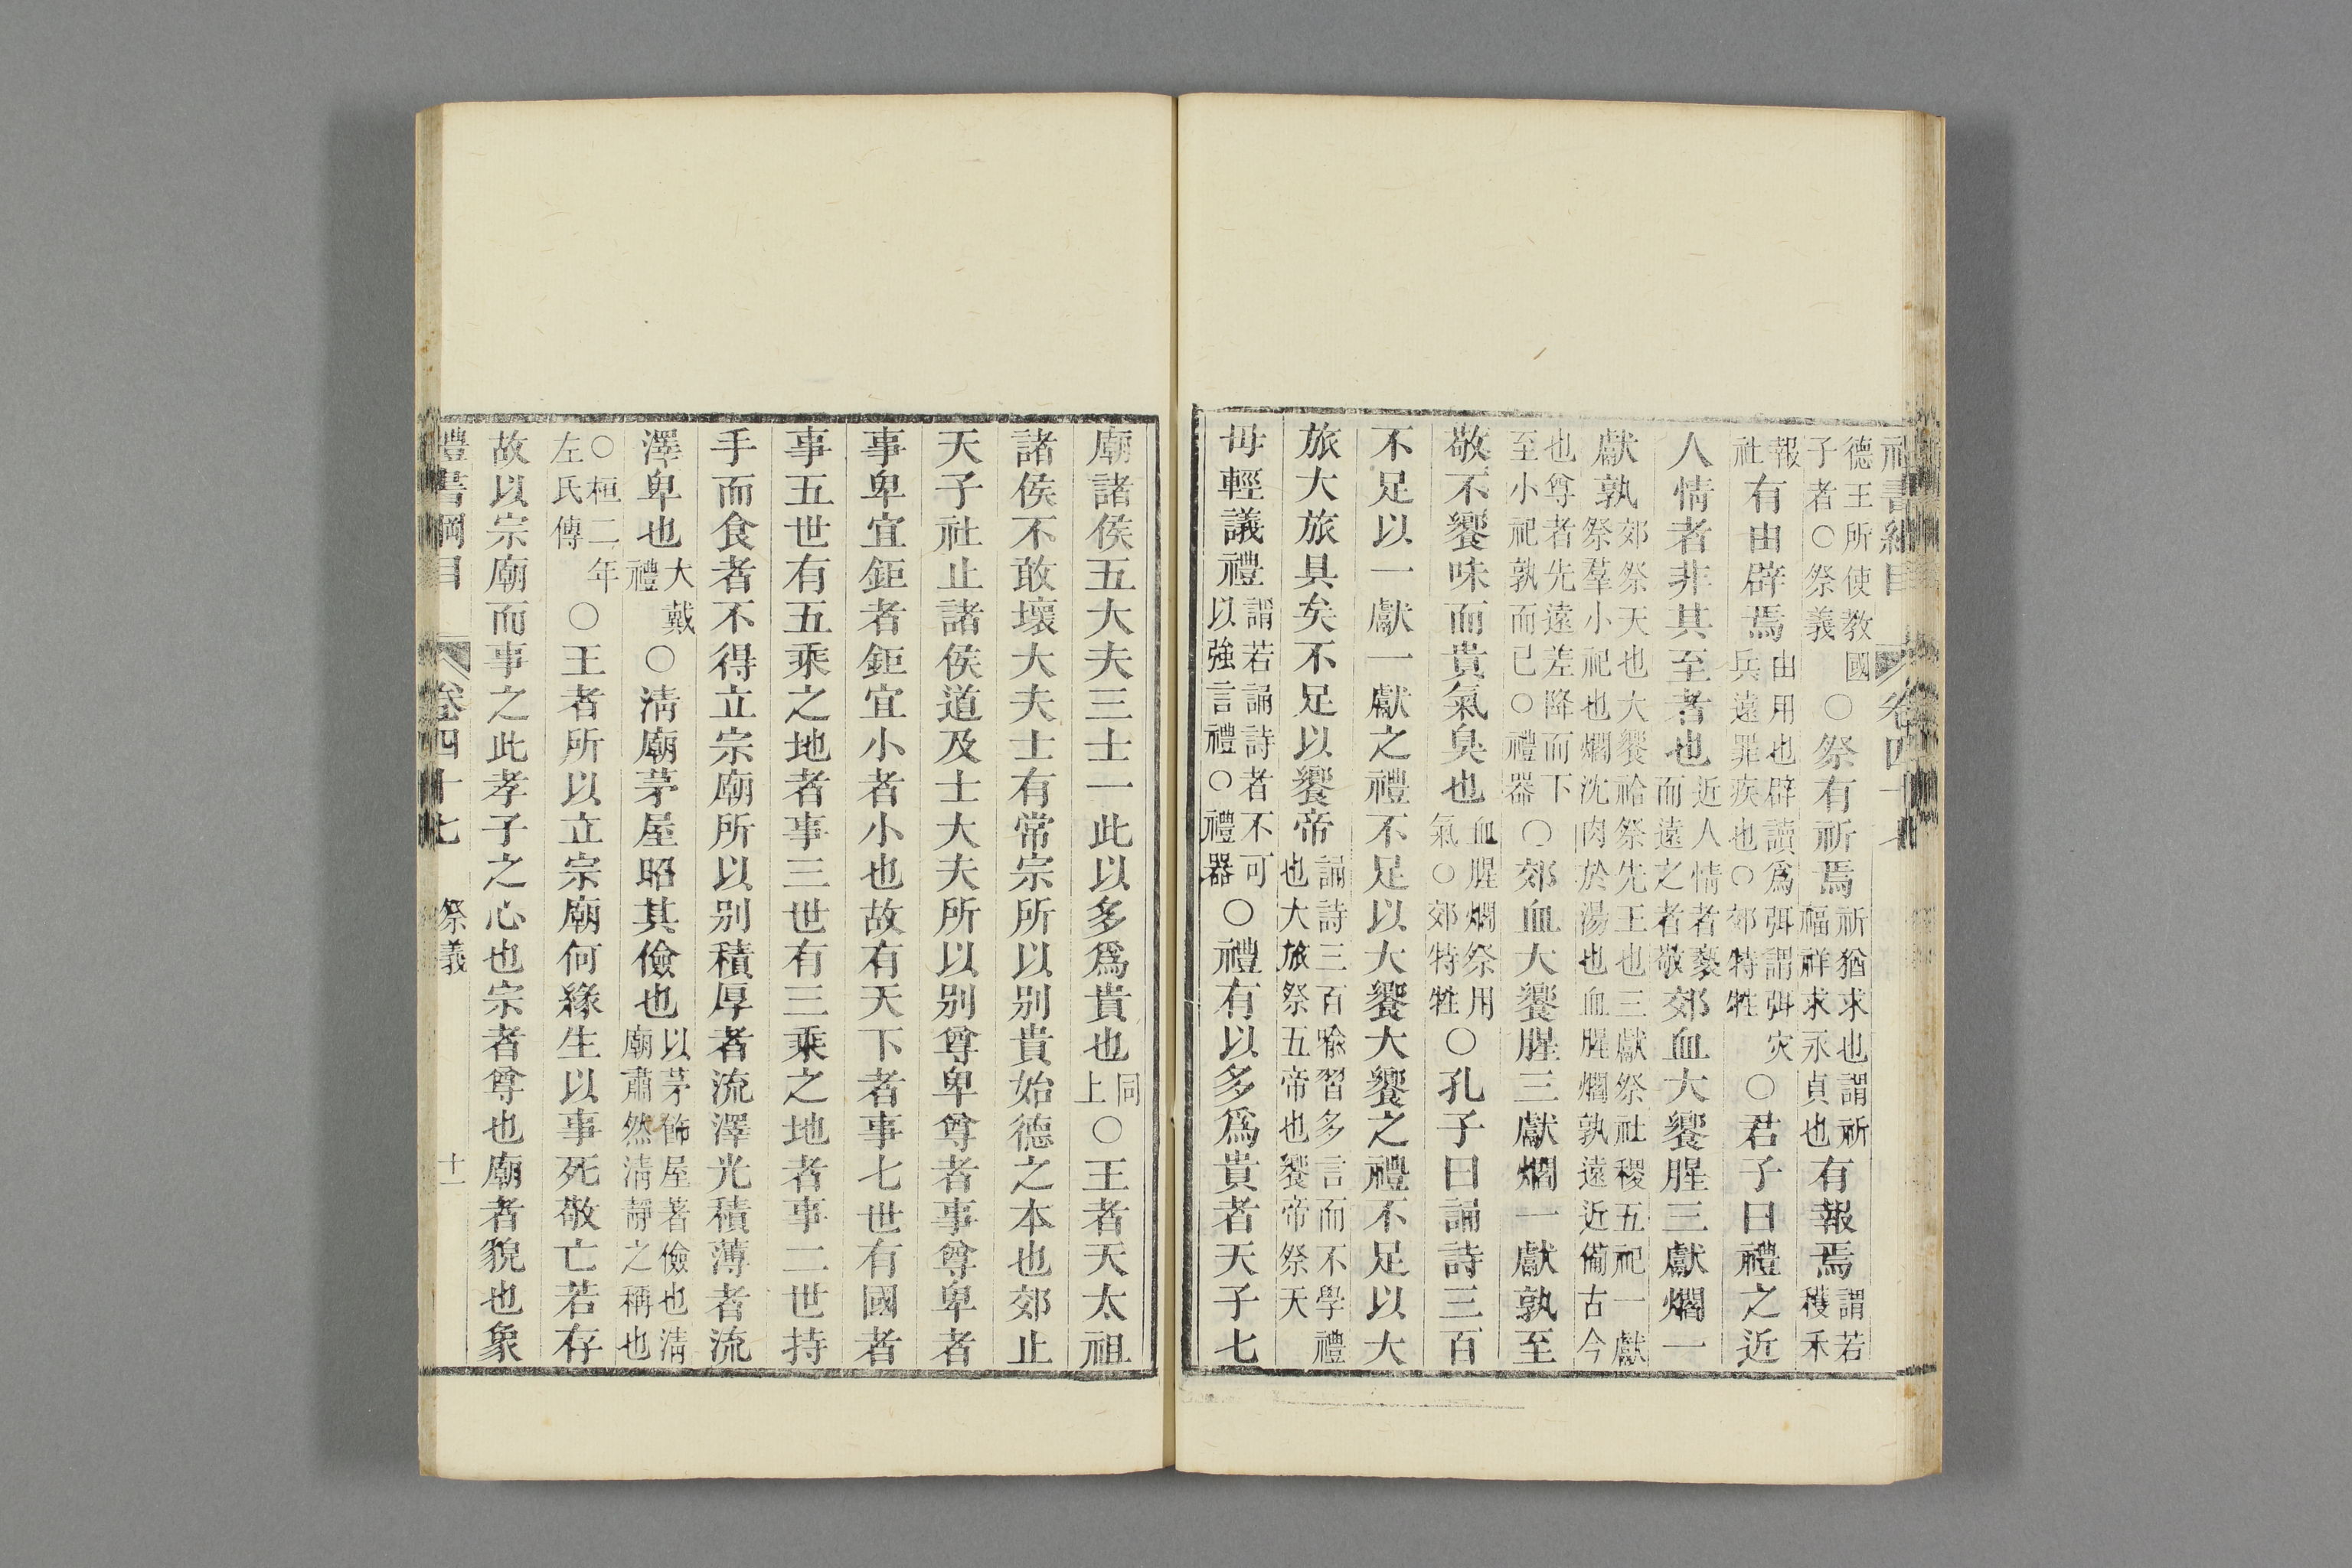 禮書綱目 卷四十七
德王所使教國子者○祭義○祭有祈焉祈猶求也謂祈福祥求永貞也有報焉謂若穫禾
報社有由辟焉由用也辟讀爲弭謂弭災兵遠罪疾也○郊特牲○君子曰禮之近
人情者非其至者也近人情者褻而遠之者敬郊血大饗腥三獻爓一
獻孰郊祭天也大饗祫祭先王也三獻祭社稷五祀一獻祭羣小祀也爓沈肉於湯也血腥爓孰遠近備古今
也尊者先遠差降而下至小祀孰而已○禮器○郊血大饗腥三獻爓一獻孰至
敬不饗味而貴氣臭也血腥爓祭用氣○郊特牲○孔子曰誦詩三百
不足以一獻一獻之禮不足以大饗大饗之禮不足以大
旅大旅具矣不足以饗帝誦詩三百喻習多言而不學禮也大旅祭五帝也饗帝祭天
毋輕議禮謂若誦詩者不可以強言禮○禮器○禮有以多爲貴者天子七
廟諸侯五大夫三士一此以多爲貴也同上○王者天太祖
諸侯不敢壞大夫士有常宗所以別貴始德之本也郊止
天子社止諸侯道及士大夫所以別尊卑尊者事尊卑者
事卑宜鉅者鉅宜小者小也故有天下者事七世有國者
事五世有五乘之地者事三世有三乘之地者事二世持
手而食者不得立宗廟所以別積厚者流澤光積薄者流
澤卑也大戴禮○淸廟茅屋昭其儉也以茅飾屋著儉也淸廟肅然淸靜之稱也
○桓二年左氏傳○王者所以立宗廟何緣生以事死敬亡若存
故以宗廟而事之此孝子之心也宗者尊也廟者貌也象
禮書綱目 卷四十七 祭義 十一